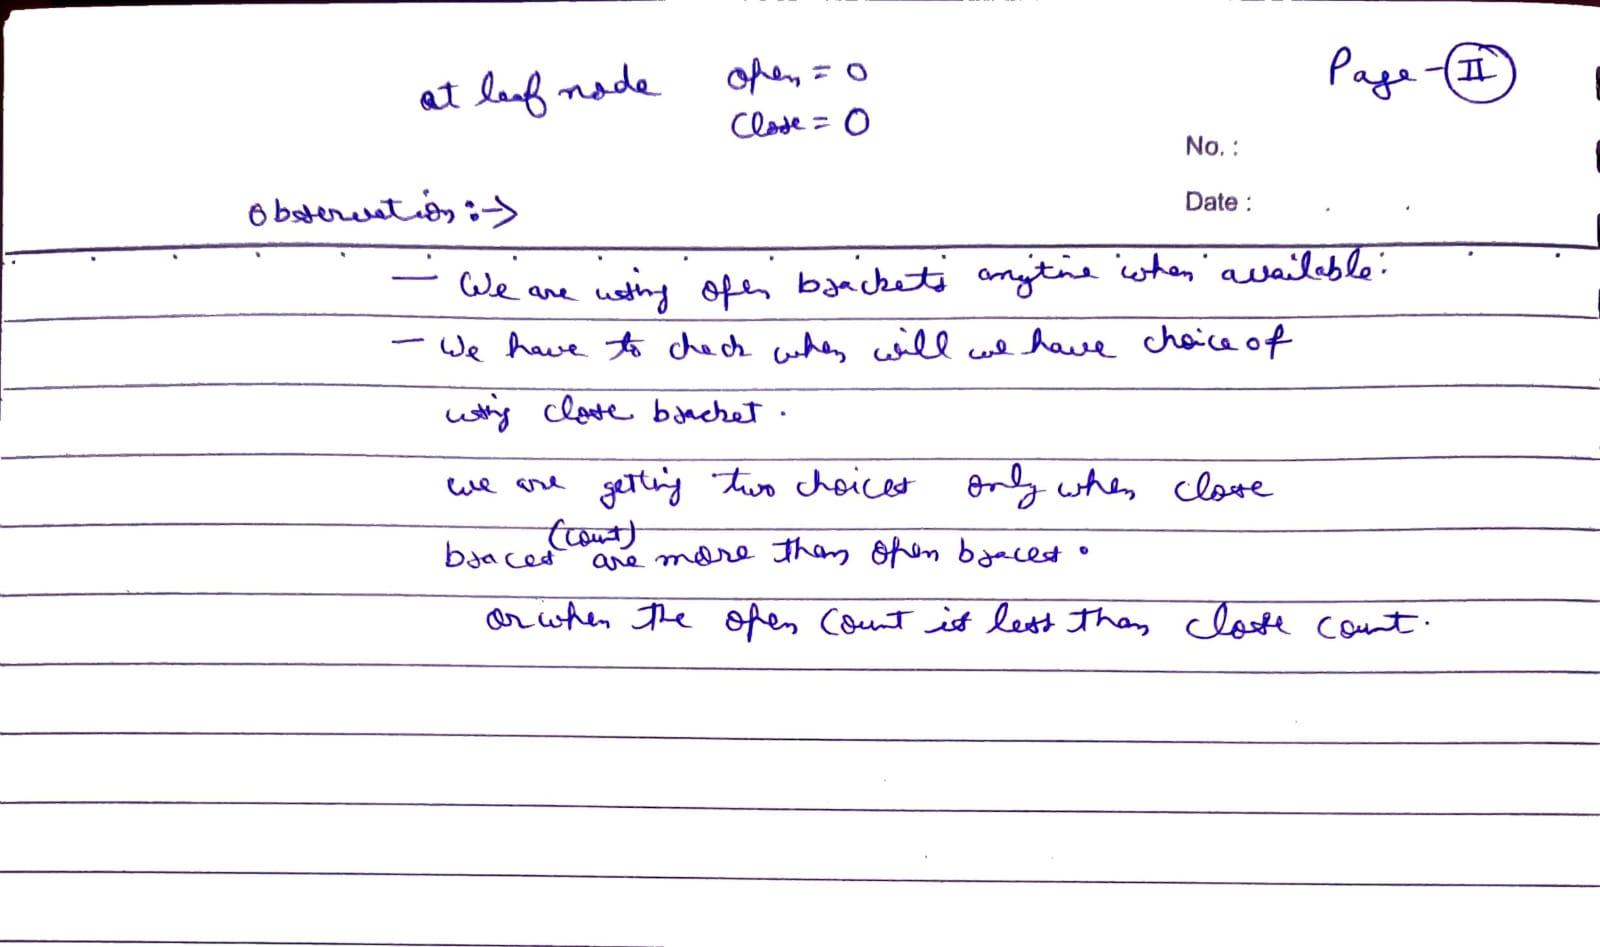 Page-II
at leaf node open = 0
Close = 0
No. :
Date :
Observation :→
— We are using open brackets anytime when available.
— We have to check when will we have choice of
using close bracket.
we are getting two choices only when close
braces (count) are more than open braces.
or when the open count is less than close count.